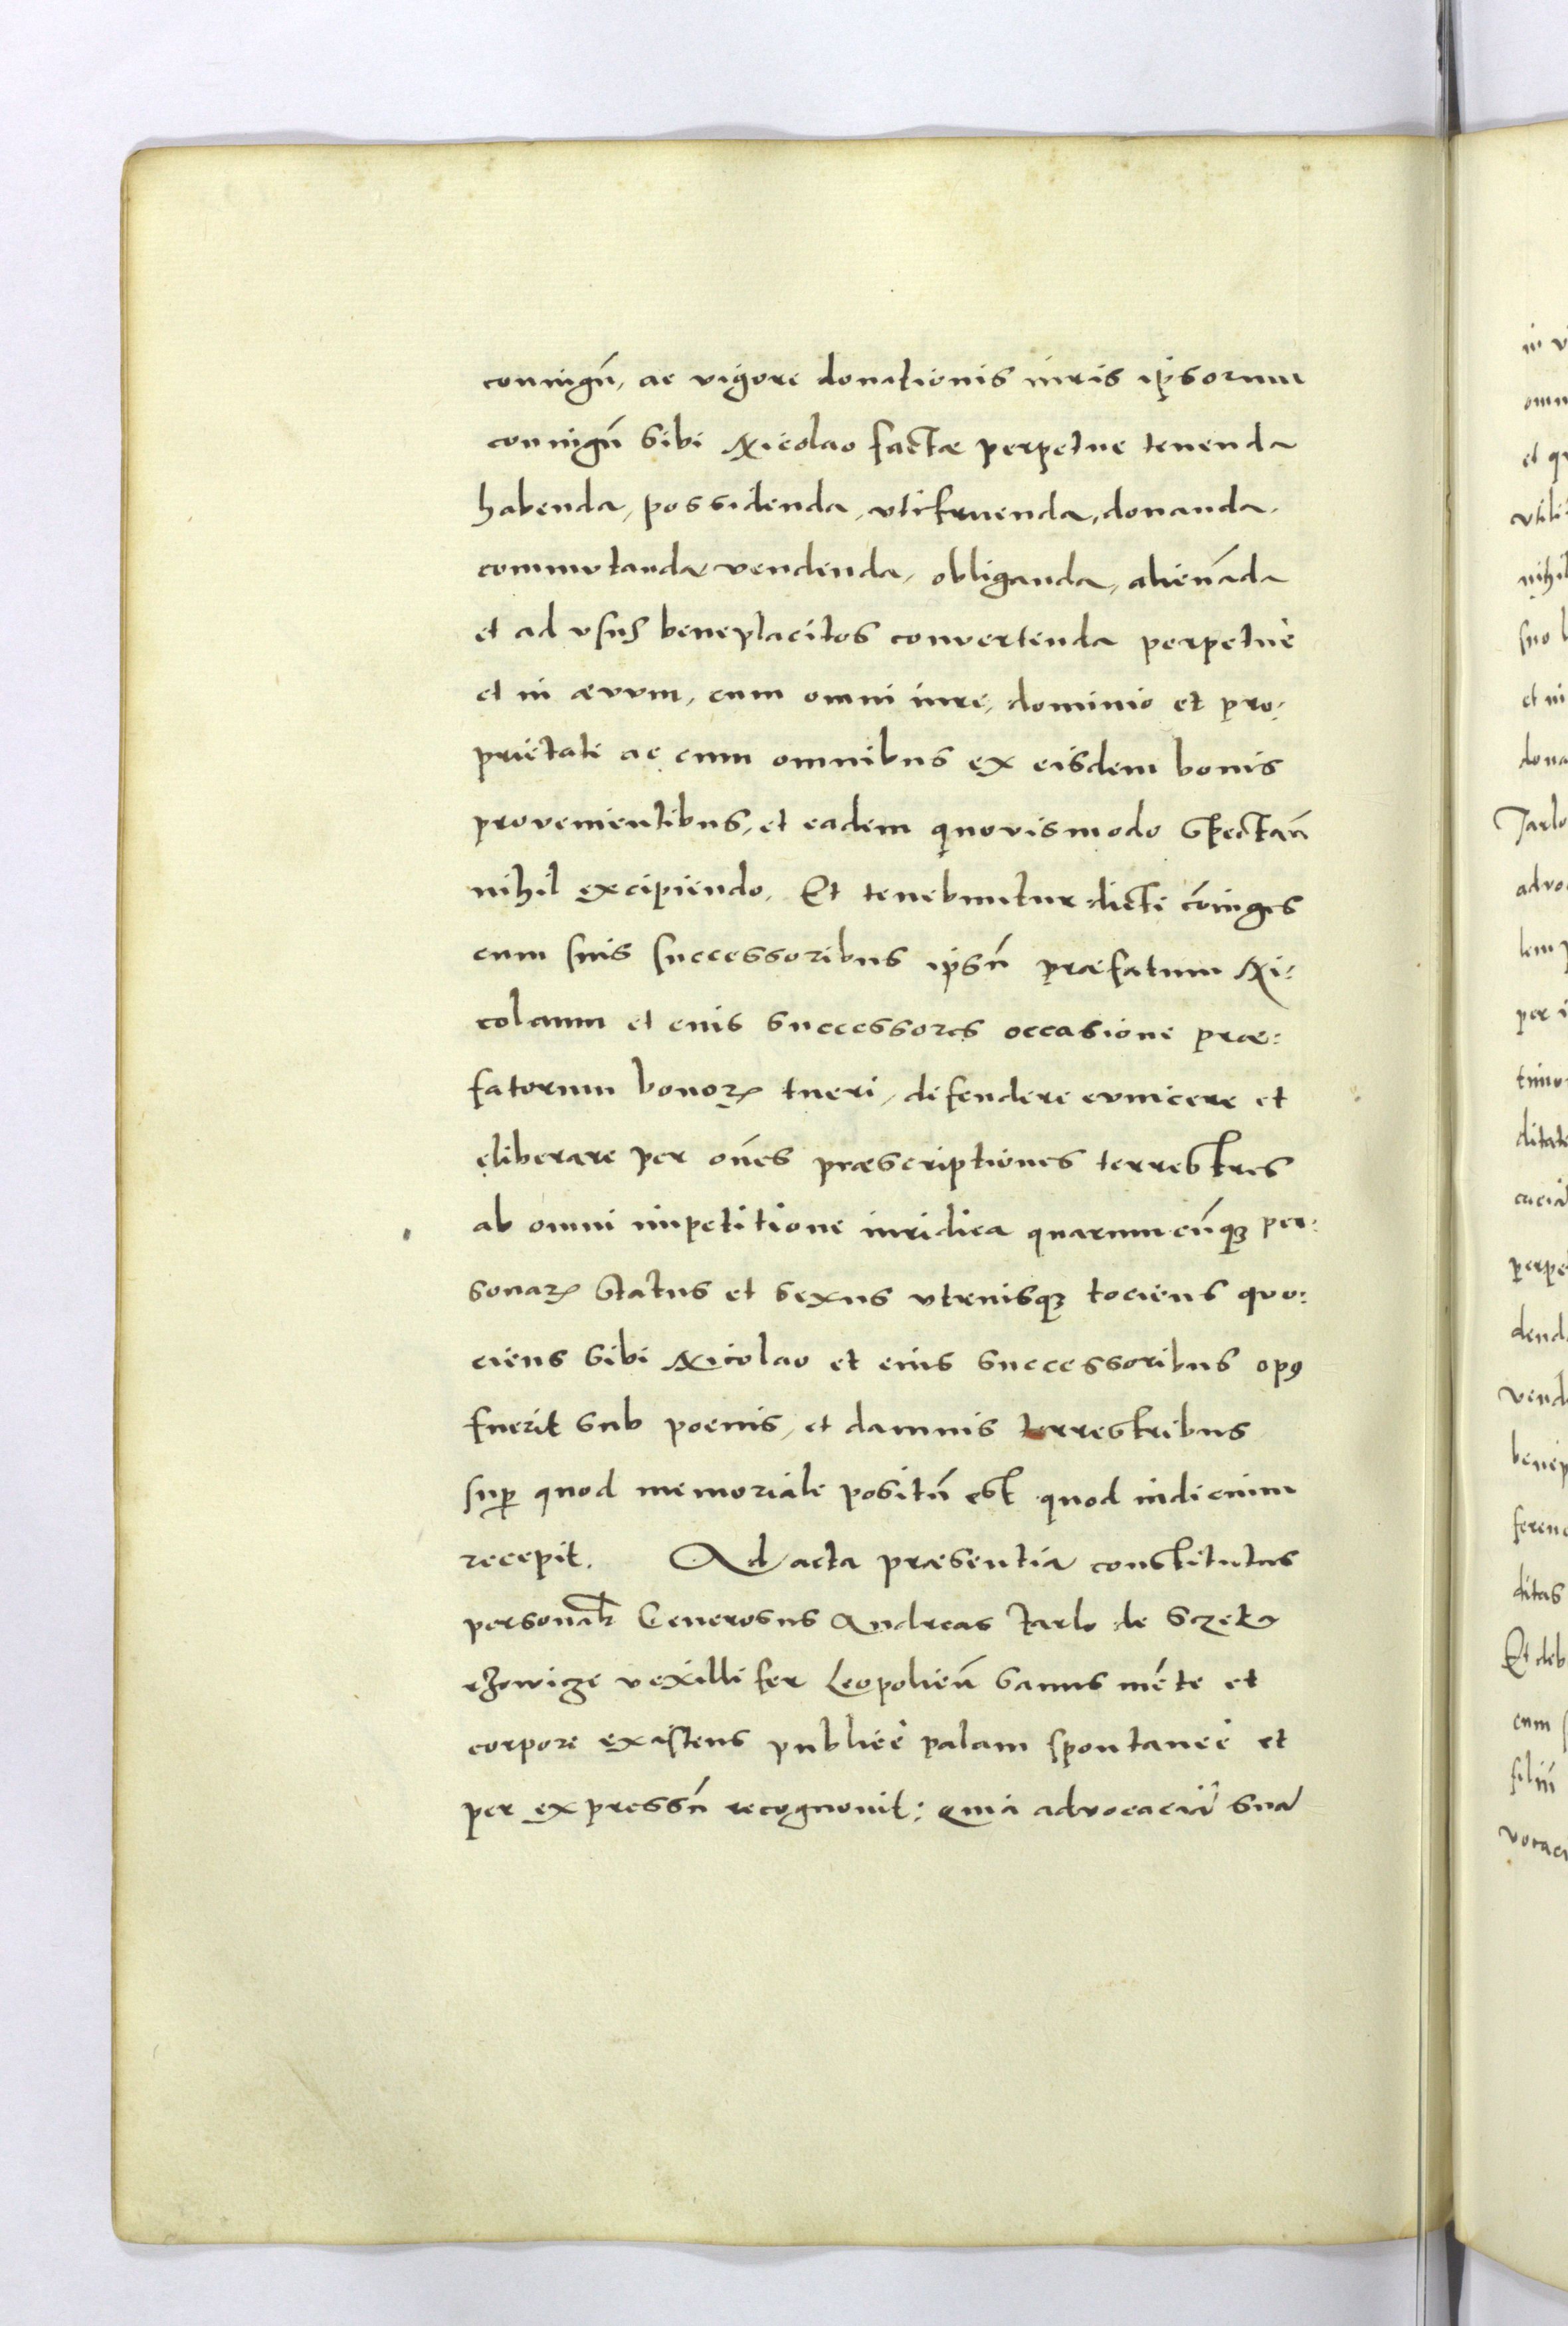 coniugū, ac vigore donationis iuris ipsorum
coniugū sibi Nicolao factæ perpetue tenenda
habenda, possidenda, vtifruenda, donanda,
commutanda vendenda, obliganda, alienāda
et ad vsus beneplacitos convertenda perpetuè
et in ævum, cum omni iure, dominio et pro:
prietate ac cum omnibus ex eisdem bonis
provenientibus, et eadem quovismodo spectan̄
nihil excipiendo. Et tenebuntur dicti cōiuges
cum suis successoribus ipsū præfatum Ni:
colaum et euis successores occasione præ:
fatorum bonoꝝ tueri, defendere evincere et
eliberare per oēs præscriptiones terrestres
ab omni impetitione iuridica quarumcūqꝫ per:
sonaꝝ status et sexus vtriusqꝫ tociens quo:
ciens sibi Nicolao et eius successoribus opꝰ
fuerit sub poenis, et damnis terrestribus
suꝑ quod memoriale positū est quod iudicium
recepit. Ad acta præsentia constitutus
personalr Generosus Andreas Tarlo de Sczeka
rzowicze vexillifer Leopolien̄ sanus mente et
corpore existens publicè palam spontaneè et
per expressū recognovit: Quia advocaciā suā
in v
omn
et qu
vtili
nihil
suo
et in
dona
Tarlo
advo
lem
per i
timo
ditat
cucia
perpe
denda
vend
benep
feren
ditas
Et deb
cum
filiū
vocaci